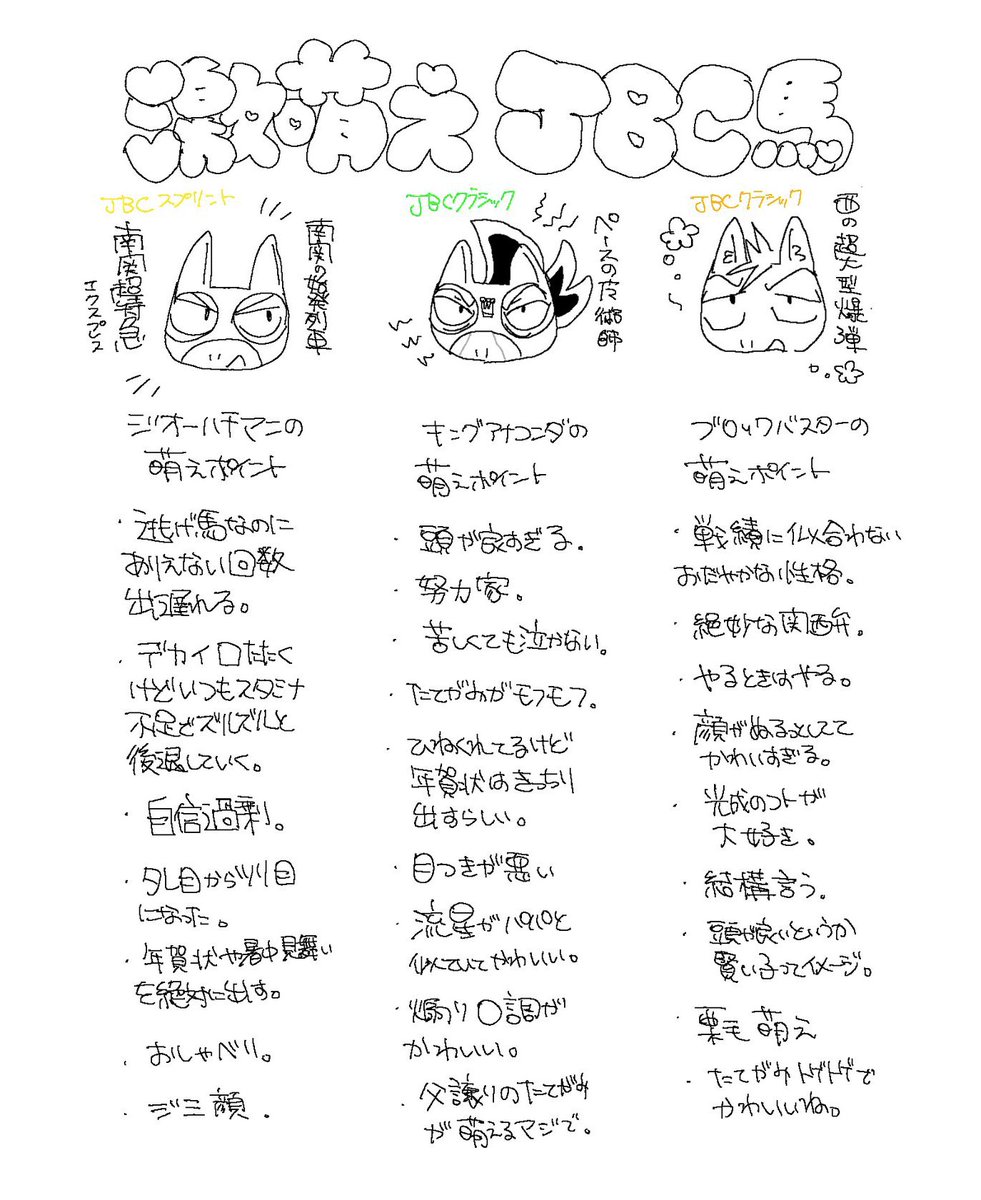 激萌え JBC馬
JBCスプリント
南関の始発列車
南関超特急
エクスプレス
ジオーハチマンの
萌えポイント
・逃げ馬なのに
ありえない回数
出遅れる。
・デカイ口たたく
けどいつもスタミナ
不足でズルズルと
後退していく。
・自信過剰。
・タレ目からツリ目
になった。
・年賀状や暑中見舞い
を絶対に出す。
・おしゃべり。
・ジミ顔。
JBCクラシック
ペースの魔術師
キングアナコンダの
萌えポイント
・頭が良すぎる。
・努力家。
・苦しくても泣かない。
・たてがみがモフモフ。
・ひねくれてるけど
年賀状はきっちり
出すらしい。
・目つきが悪い
・流星がパパと
似ていてかわいい。
・煽り口調が
かわいい。
・父譲りのたてがみ
が萌えるマジで。
JBCクラシック
西の超大型爆弾
ブロックバスターの
萌えポイント
・戦績に似合わない
おだやかな性格。
・絶妙な関西弁。
・やるときはやる。
・顔がぬるっとしてて
かわいすぎる。
・光成のコトが
大好き。
・結構言う。
・頭が良いというか
賢い子ってイメージ。
・栗毛萌え
・たてがみトゲトゲで
かわいいね。